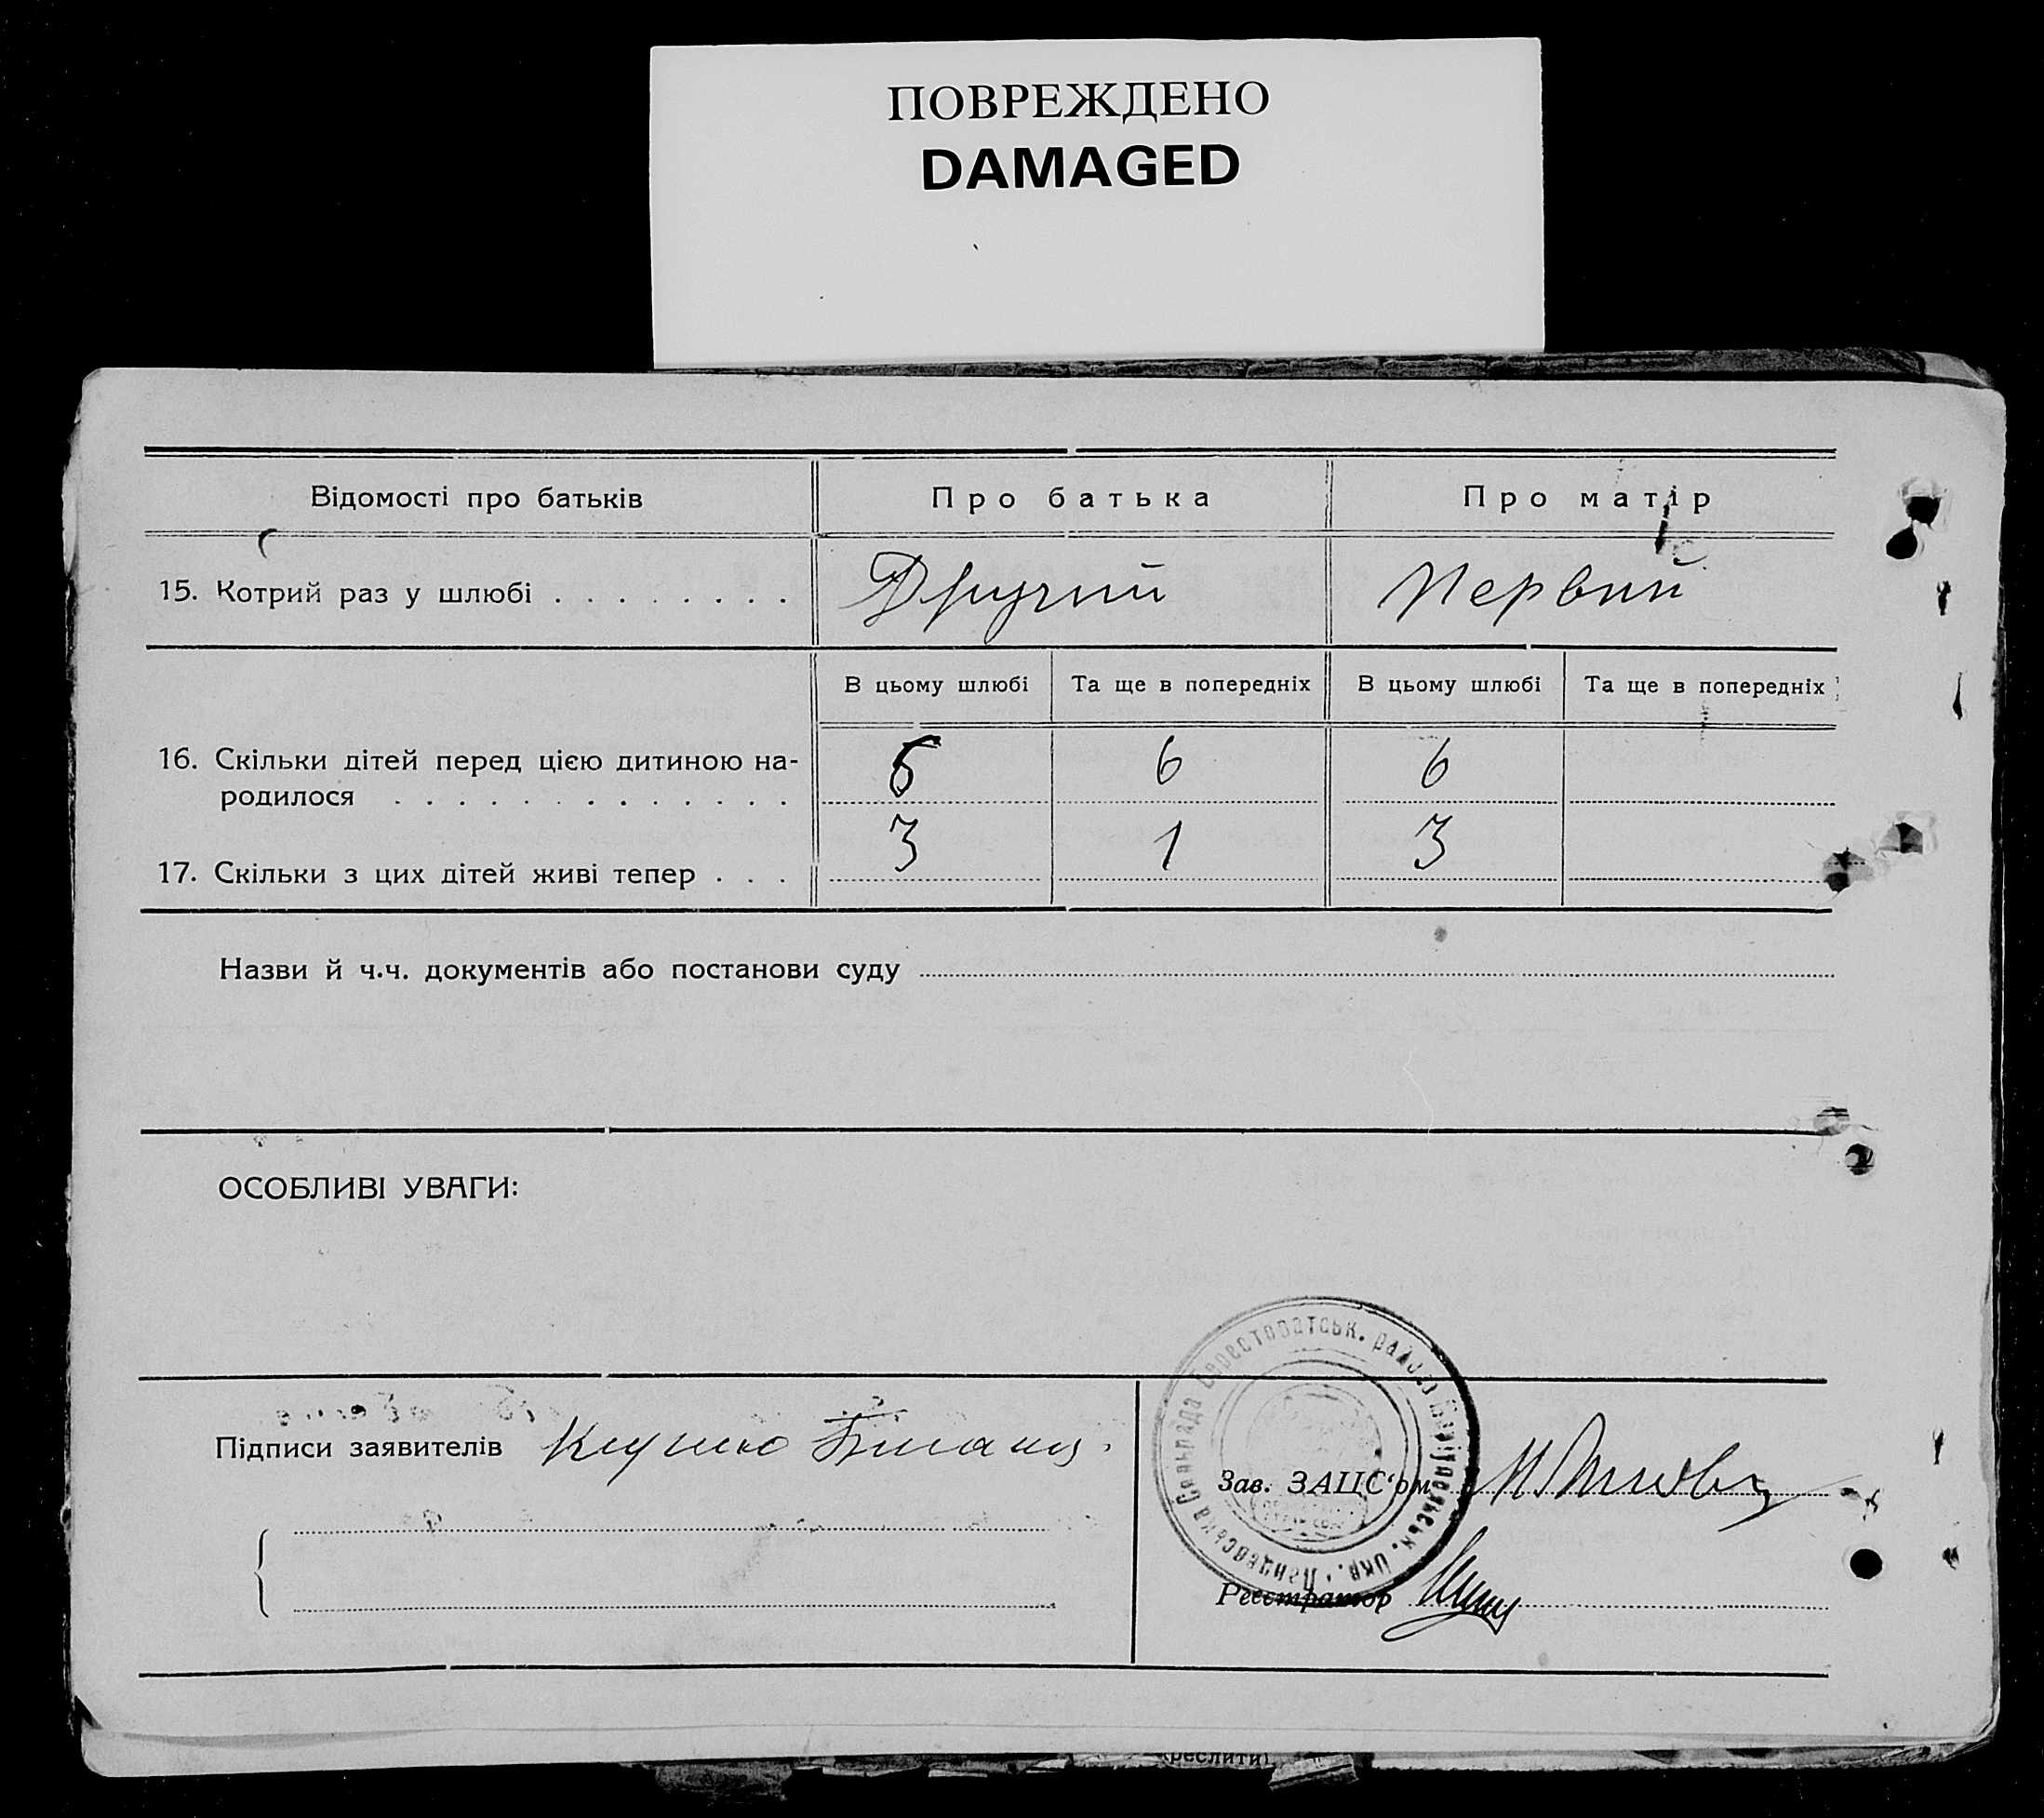 ПОВРЕЖДЕНО
DAMAGED
Відомості про батьків
Про батька
Про матір
15. Котрий раз у шлюбі . . . . . . . .
Другий
Первий
В цьому шлюбі
Та ще в попередніх
В цьому шлюбі
Та ще в попередніх
16. Скільки дітей перед цією дитиною на-
родилося . . . . . . . . . . . . .
6
6
6
17. Скільки з цих дітей живі тепер . . .
3
1
3
Назви й ч.ч. документів або постанови суду
ОСОБЛИВІ УВАГИ:
Підписи заявителів
Берестоватськ. району
Сельрада
Окр.
Зав. ЗАЦС'ом
Реєстратор
креслити)